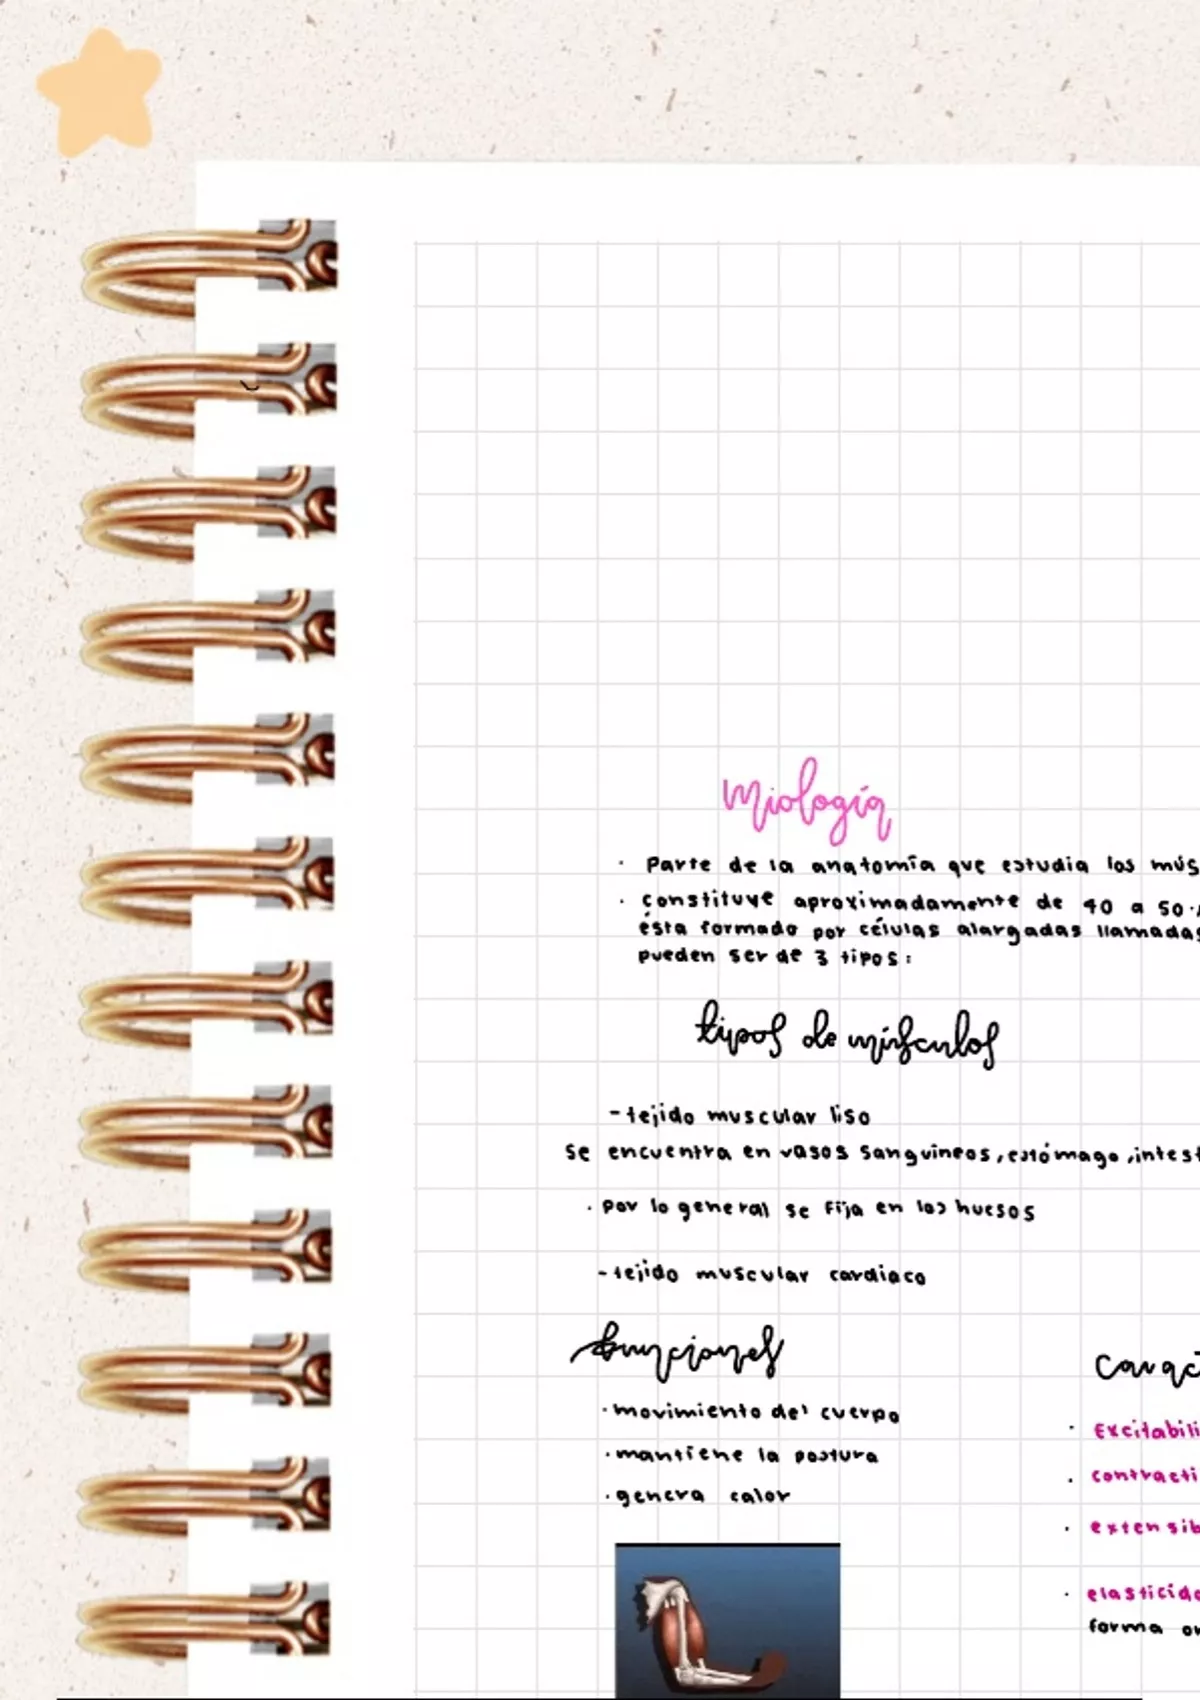 Miología
· Parte de la anatomía que estudia los mús
· constituye aproximadamente de 40 a 50
ésta formado por células alargadas llamadas
pueden ser de 3 tipos:
tipos de músculos
-tejido muscular liso
se encuentra en vasos sanguíneos, estómago, intest
· por lo general se fija en los huesos
-tejido muscular cardiaco
funciones
Carac
· movimiento del cuerpo
· Excitabili
· mantiene la postura
· contracti
· genera calor
· extensib
· elasticida
forma or